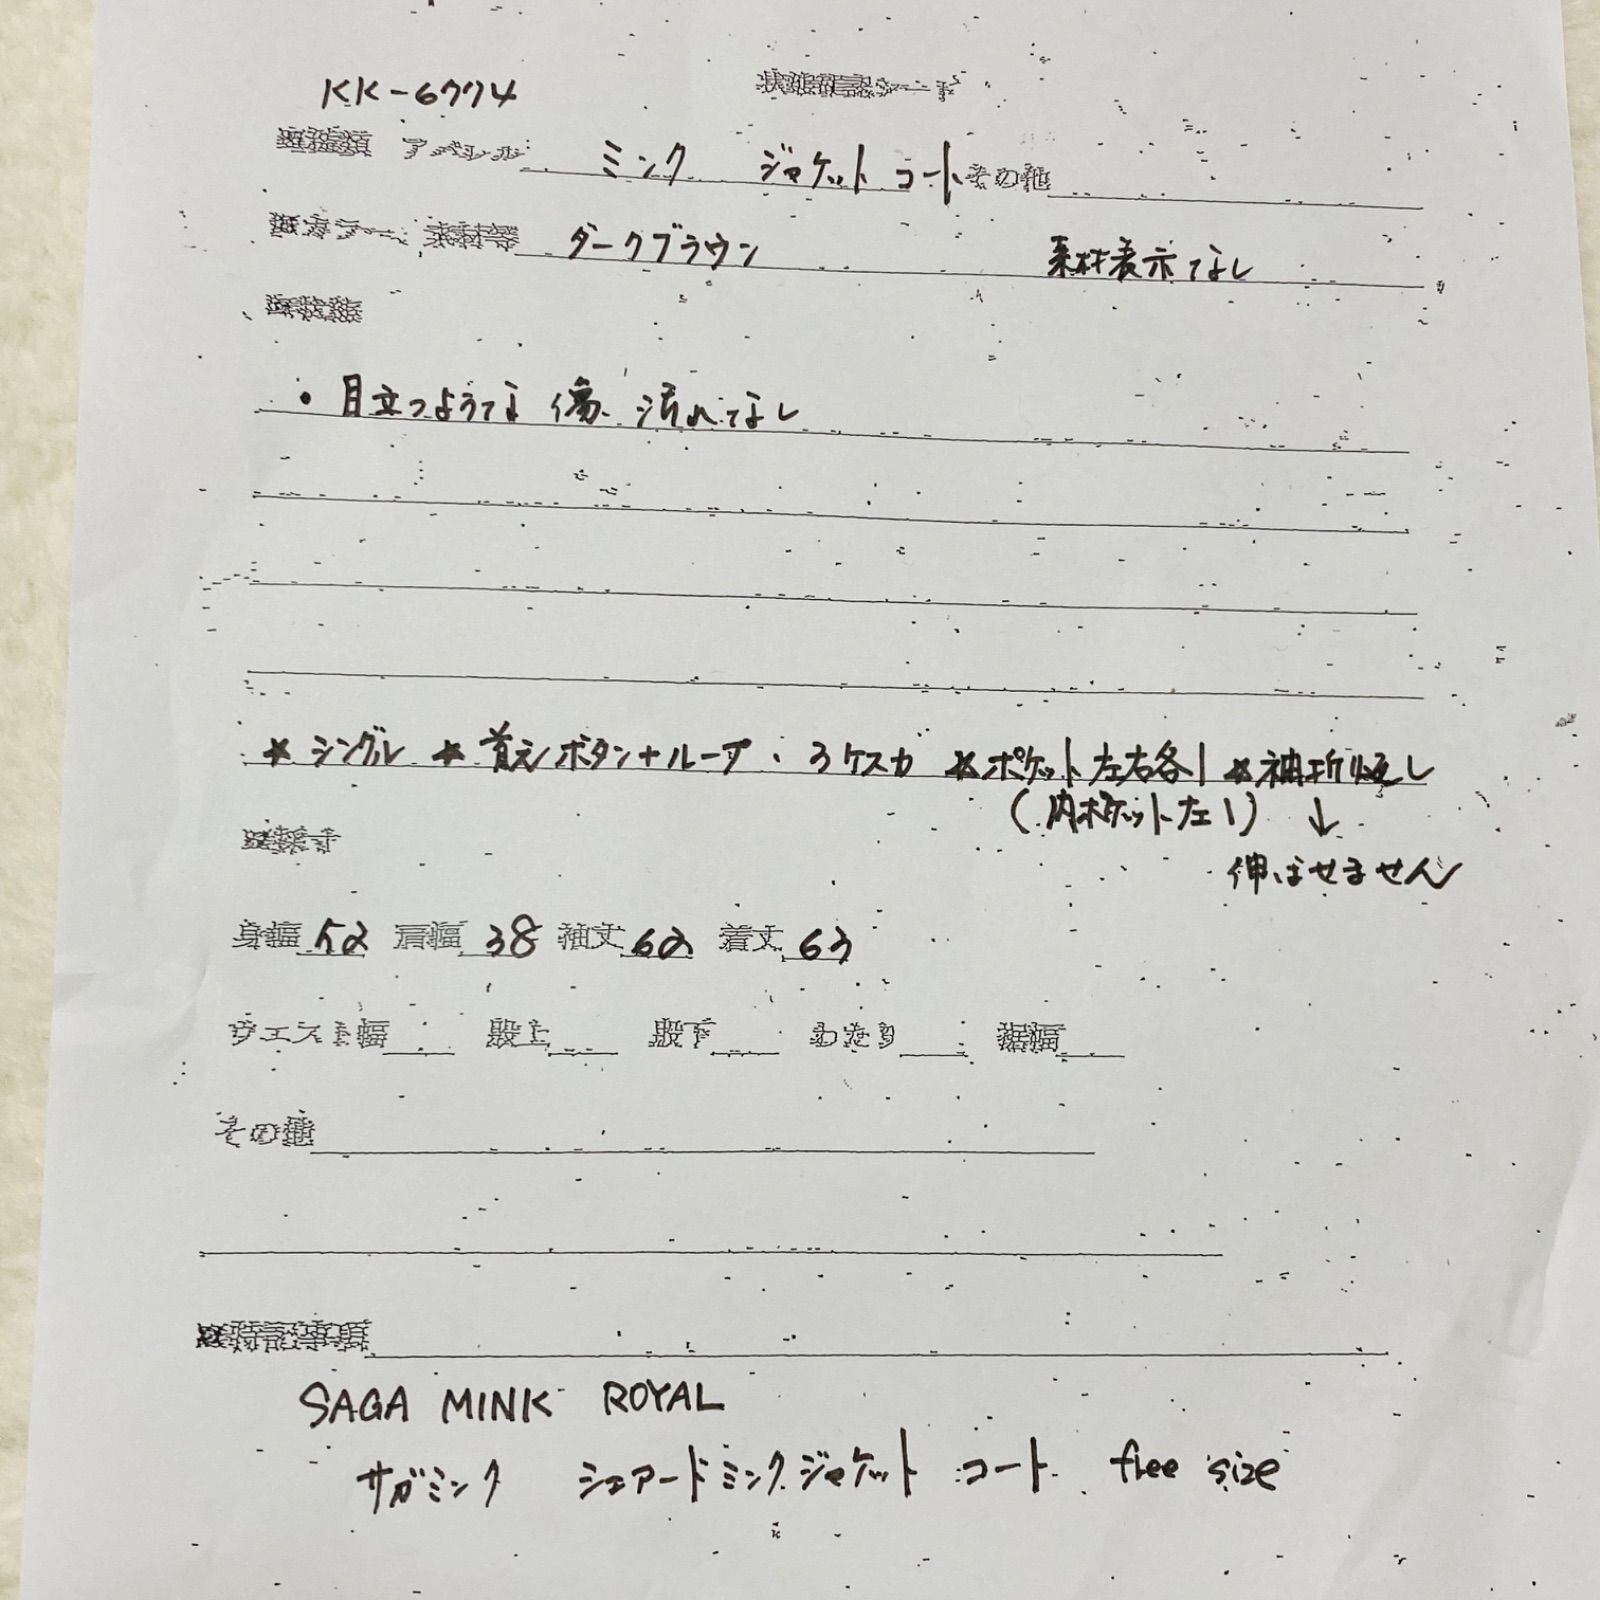 KK-6774 状態確認シート
種類 アパレル ミンク ジャケット コート その他
カラー、素材等 ダークブラウン 素材表示なし
・目立つような傷、汚れなし
★シングル ★首元ボタン+ループ・3ケスカ ★ポケット左右各1 ★袖折返し
(内ポケット左1) ↓
伸ばせません
採寸
身幅 52 肩幅 38 袖丈 62 着丈 63
ウエスト幅 股上 股下 わたり 裾幅
その他
特記事項
SAGA MINK ROYAL
サガミンク シェアードミンクジャケット コート free size